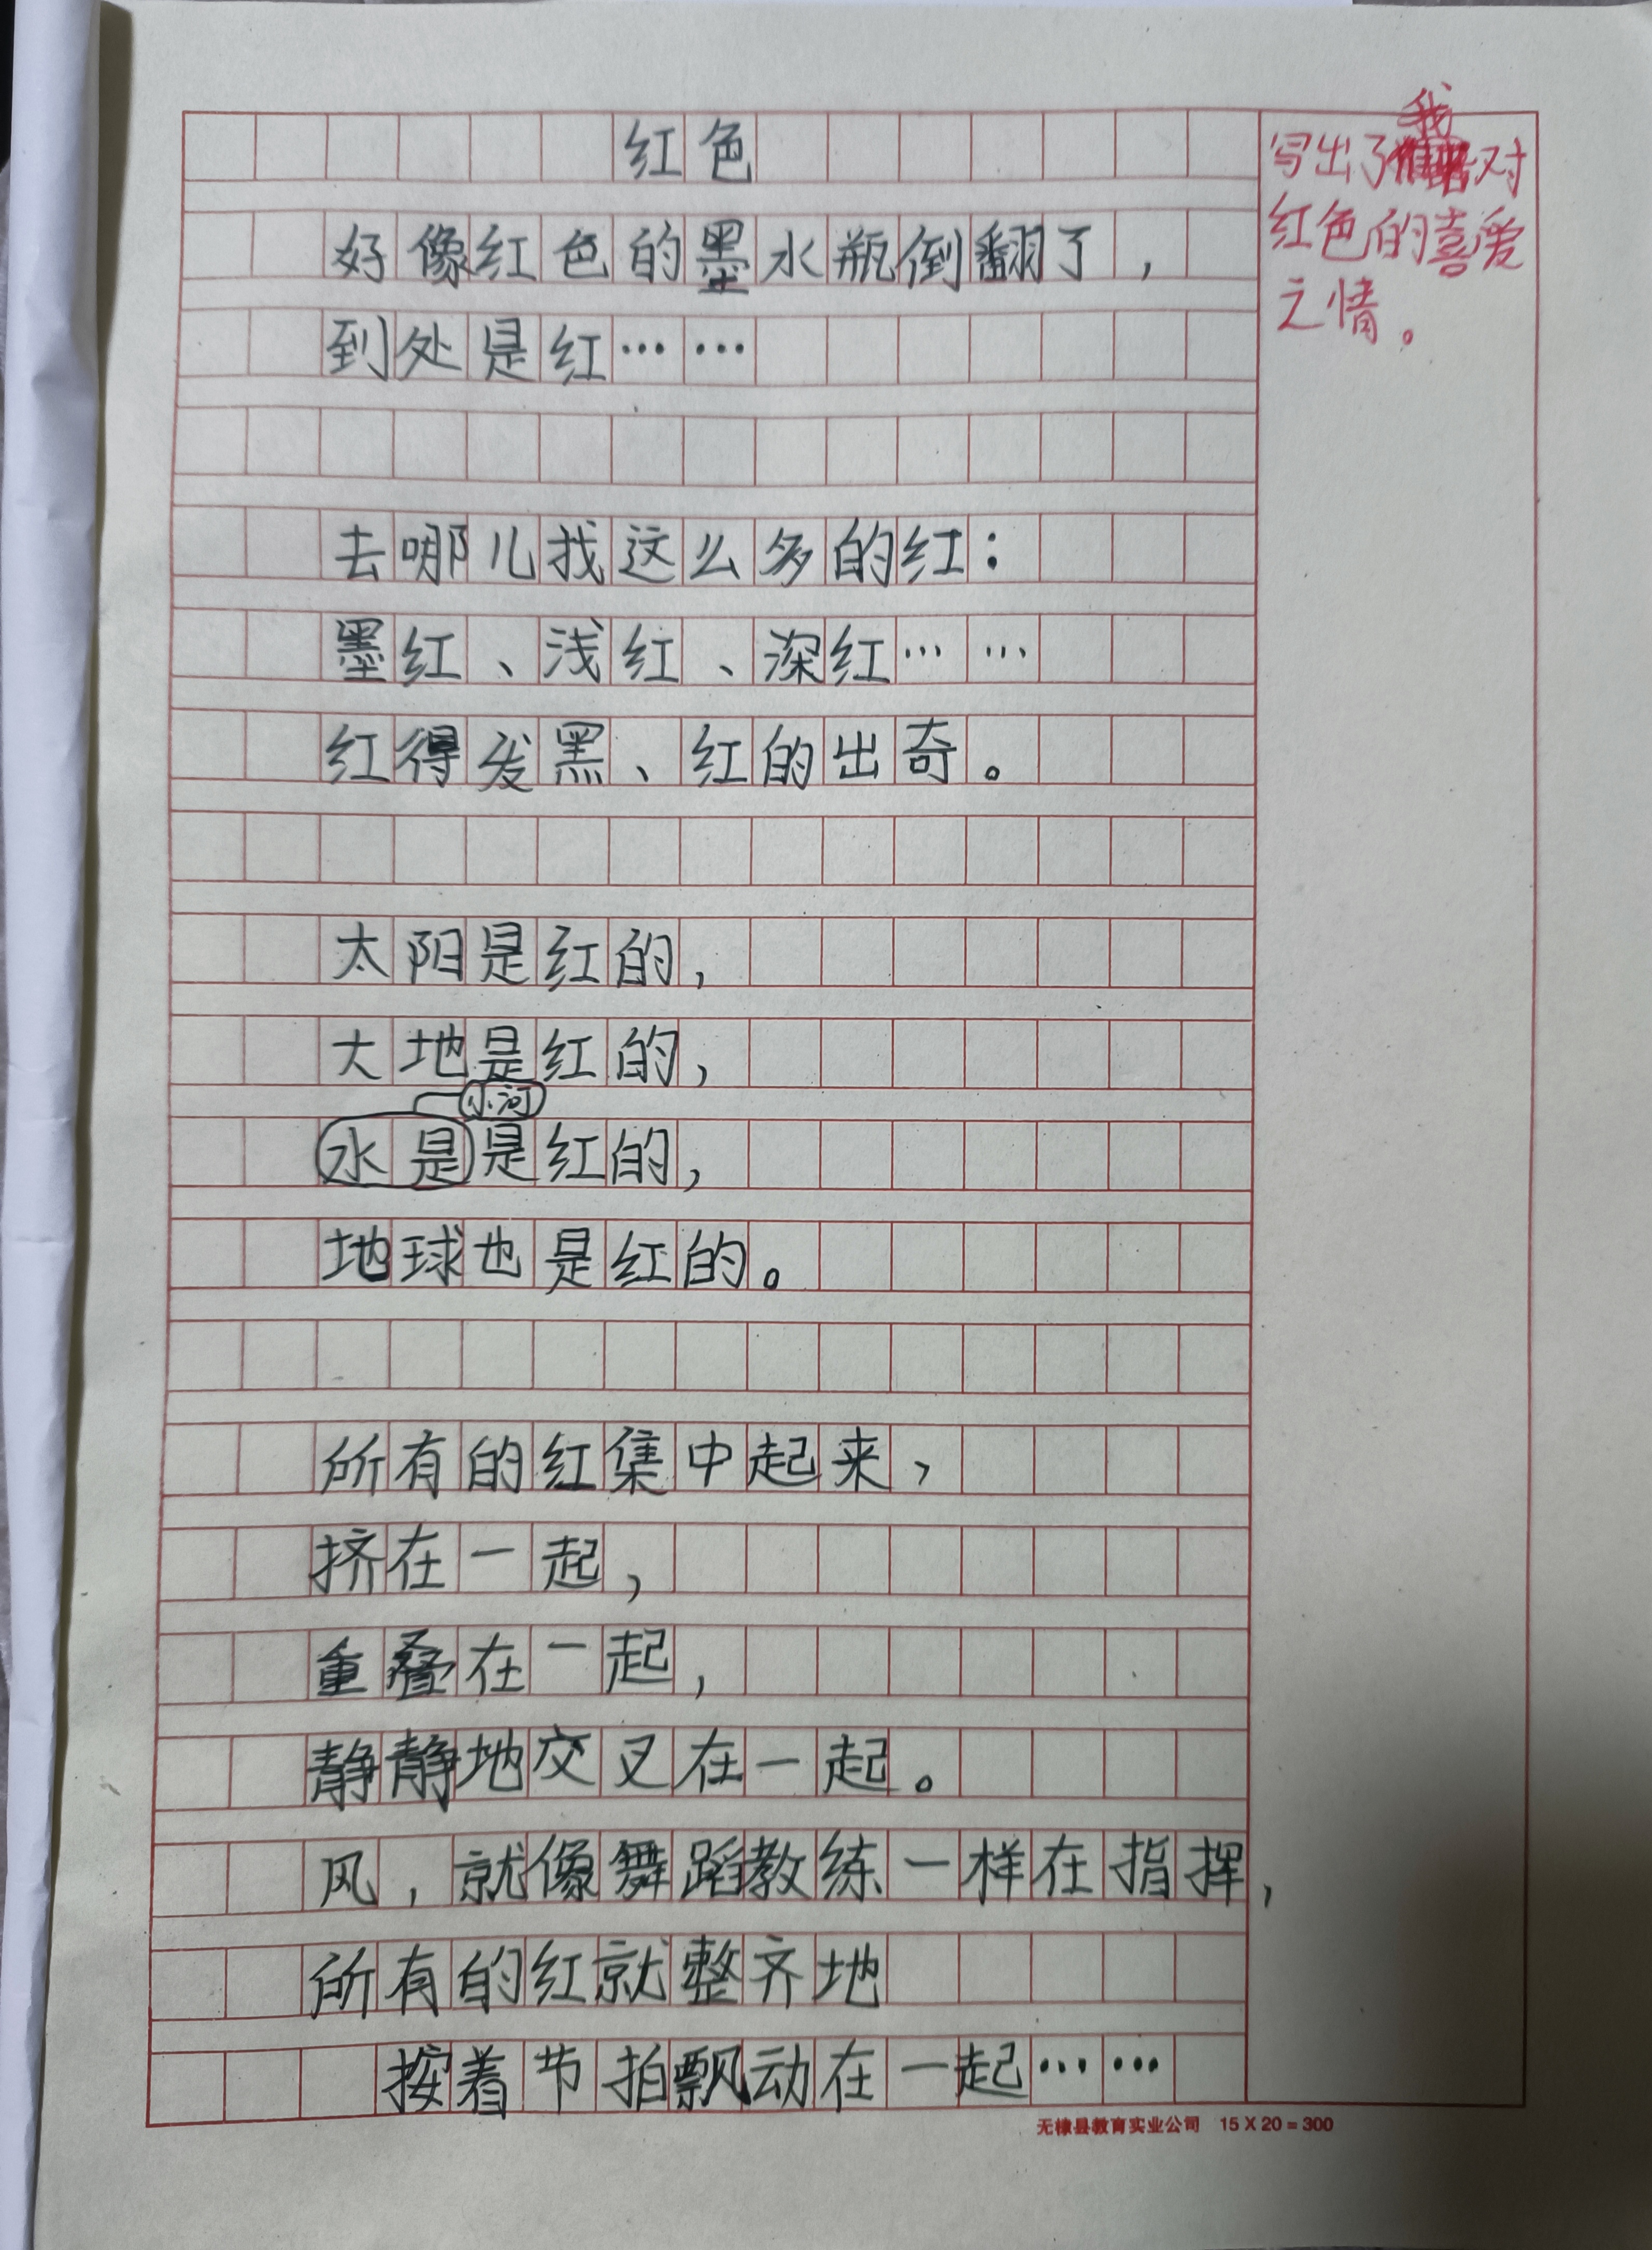 红色
好像红色的墨水瓶倒翻了，
到处是红……
去哪儿找这么多的红：
墨红、浅红、深红……
红得发黑、红的出奇。
太阳是红的，
大地是红的，
小河
水是是红的，
地球也是红的。
所有的红集中起来，
挤在一起，
重叠在一起，
静静地交叉在一起。
风，就像舞蹈教练一样在指挥，
所有的红就整齐地
按着节拍飘动在一起……
我
写出了对
红色的喜爱
之情。
无棣县教育实业公司 15 X 20 = 300